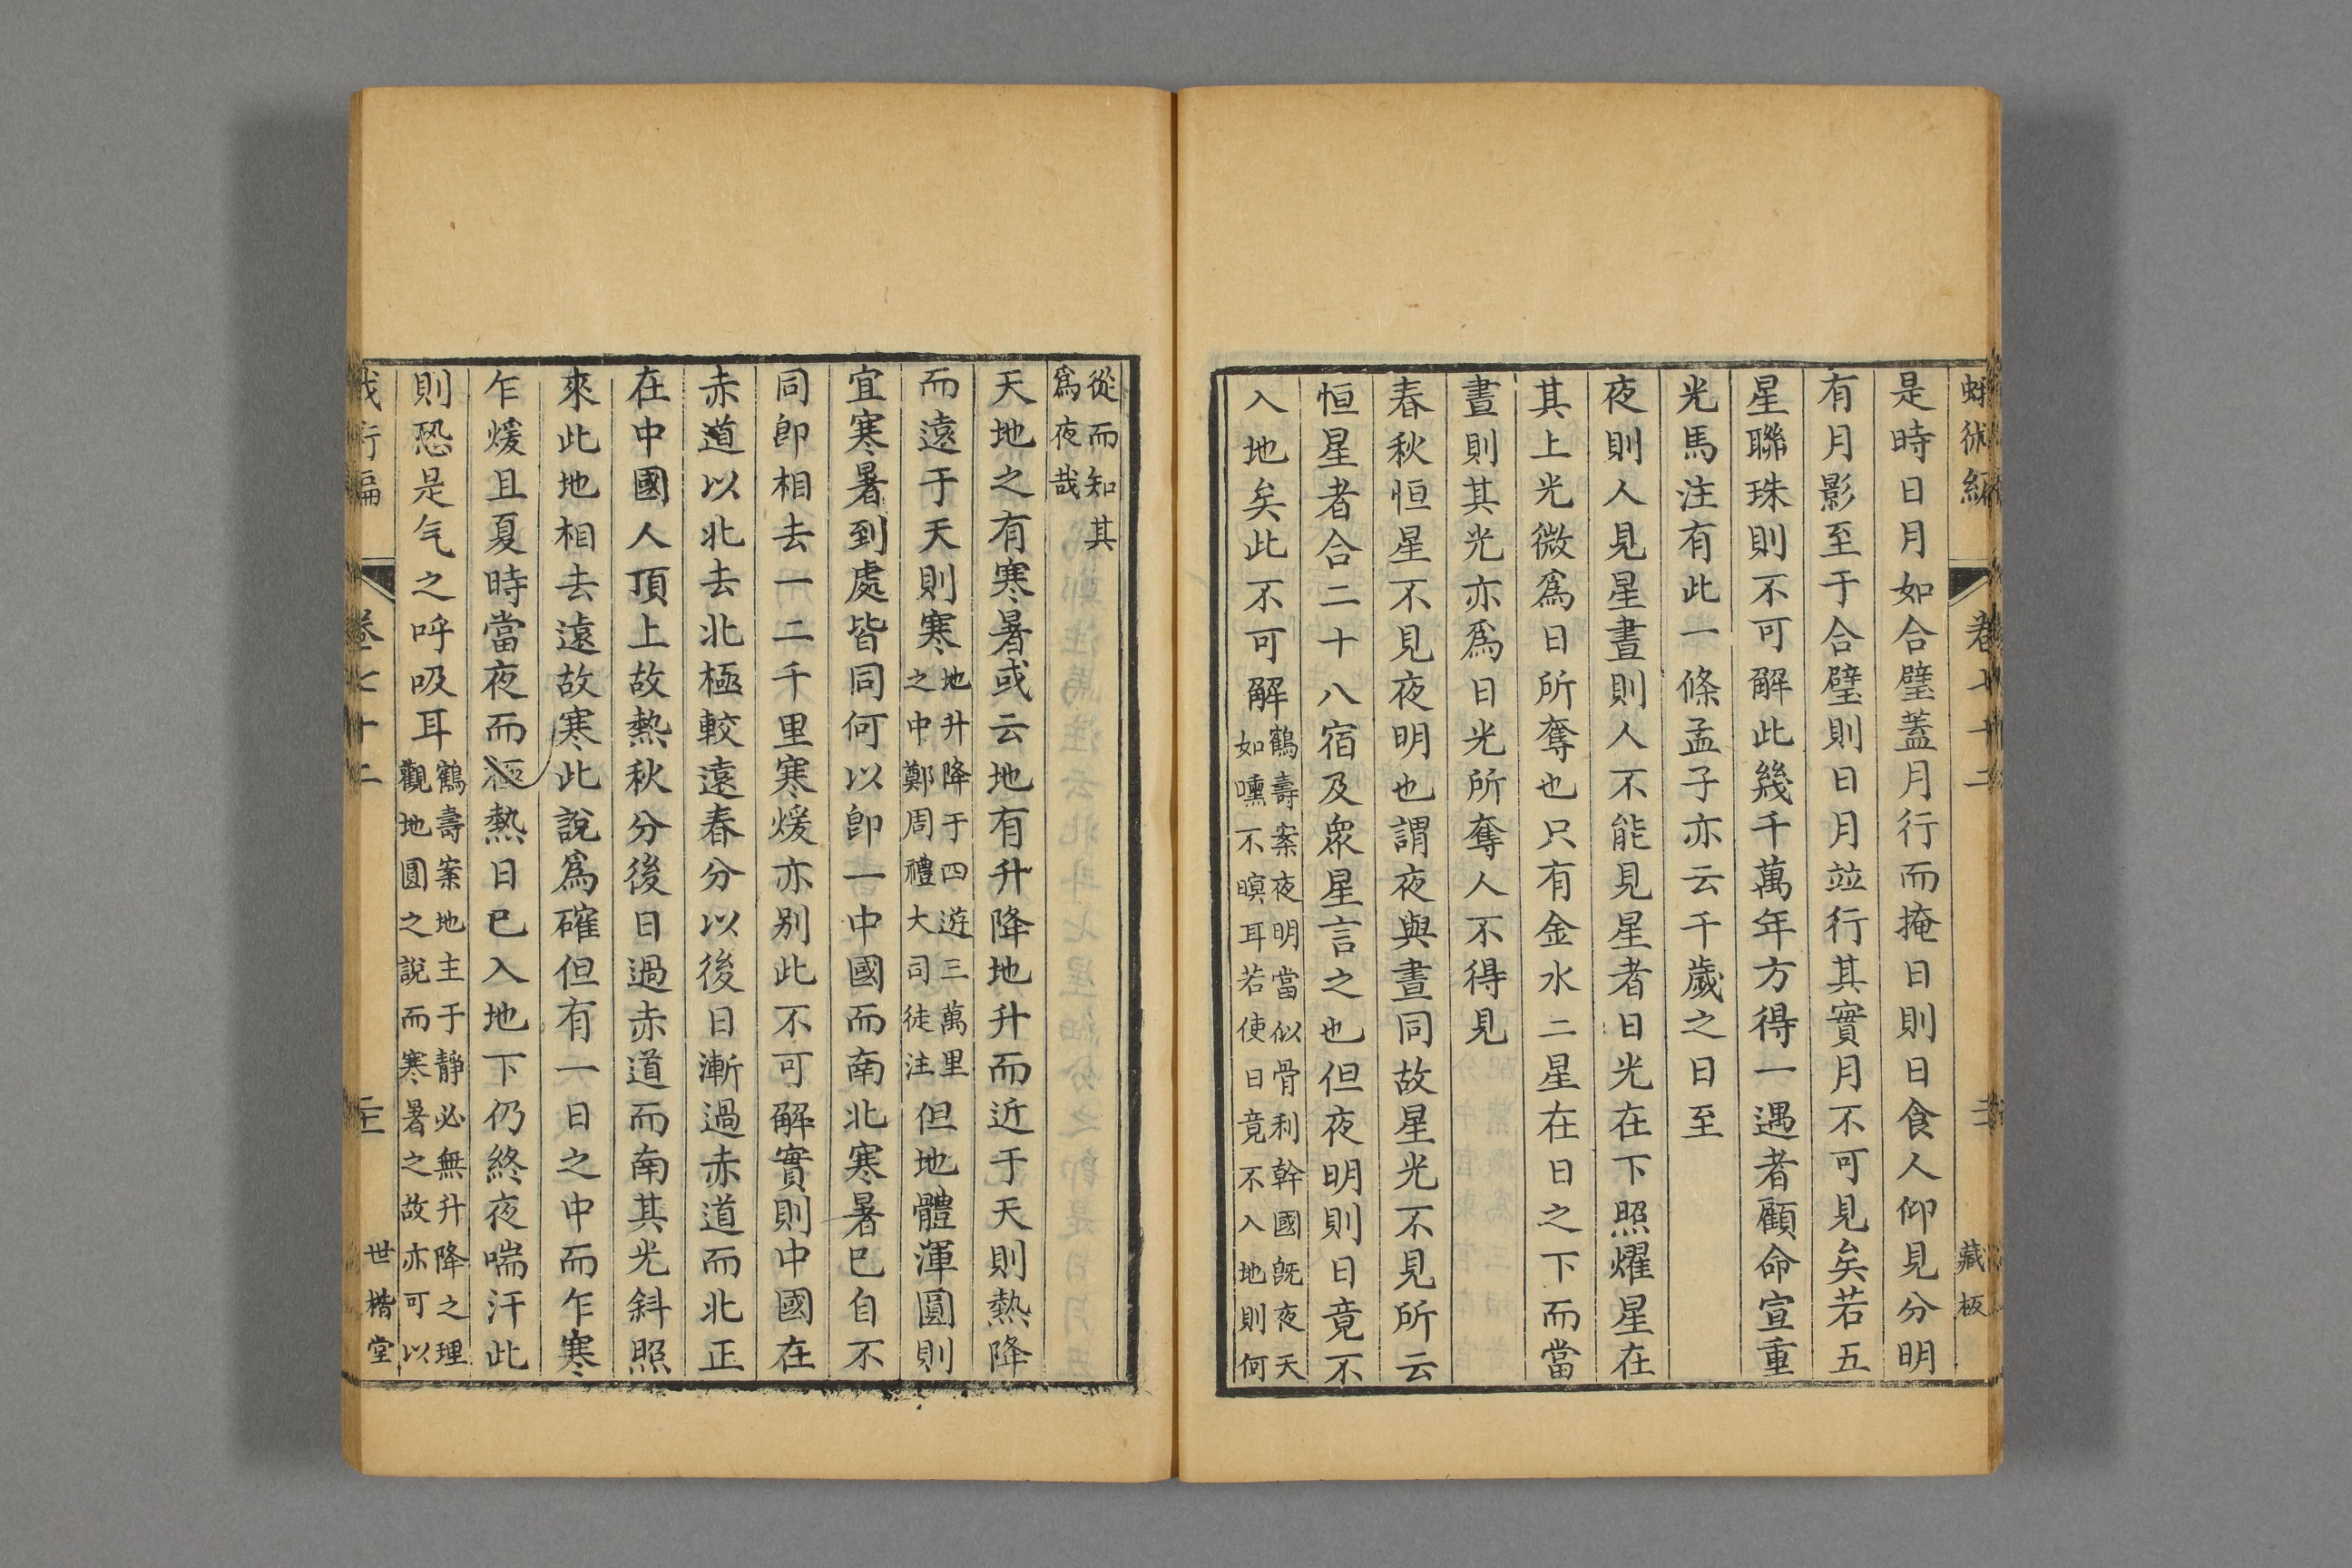 是時日月如合璧蓋月行而掩日則日食人仰見分明
有月影至于合璧則日月竝行其實月不可見矣若五
星聯珠則不可解此幾千萬年方得一遇者顧命宣重
光馬注有此一條孟子亦云千歲之日至
夜則人見星晝則人不能見星者日光在下照燿星在
其上光微爲日所奪也只有金水二星在日之下而當
晝則其光亦爲日光所奪人不得見
春秋恒星不見夜明也謂夜與晝同故星光不見所云
恒星者合二十八宿及眾星言之也但夜明則日竟不
入地矣此不可解鶴壽案夜明當似骨利幹國旣夜天
如曛不暝耳若使日竟不入地則何
從而知其
爲夜哉
天地之有寒暑或云地有升降地升而近于天則熱降
而遠于天則寒地升降于四遊三萬里
之中鄭周禮大司徒注但地體渾圓則
宜寒暑到處皆同何以卽一中國而南北寒暑已自不
同卽相去一二千里寒煖亦別此不可解實則中國在
赤道以北去北極較遠春分以後日漸過赤道而北正
在中國人頂上故熱秋分後日過赤道而南其光斜照
來此地相去遠故寒此說爲確但有一日之中而乍寒
乍煖且夏時當夜而極熱日已入地下仍終夜喘汗此
則恐是气之呼吸耳鶴壽案地主于靜必無升降之理
觀地圓之說而寒暑之故亦可以
卷七十二
世楷堂
藏板